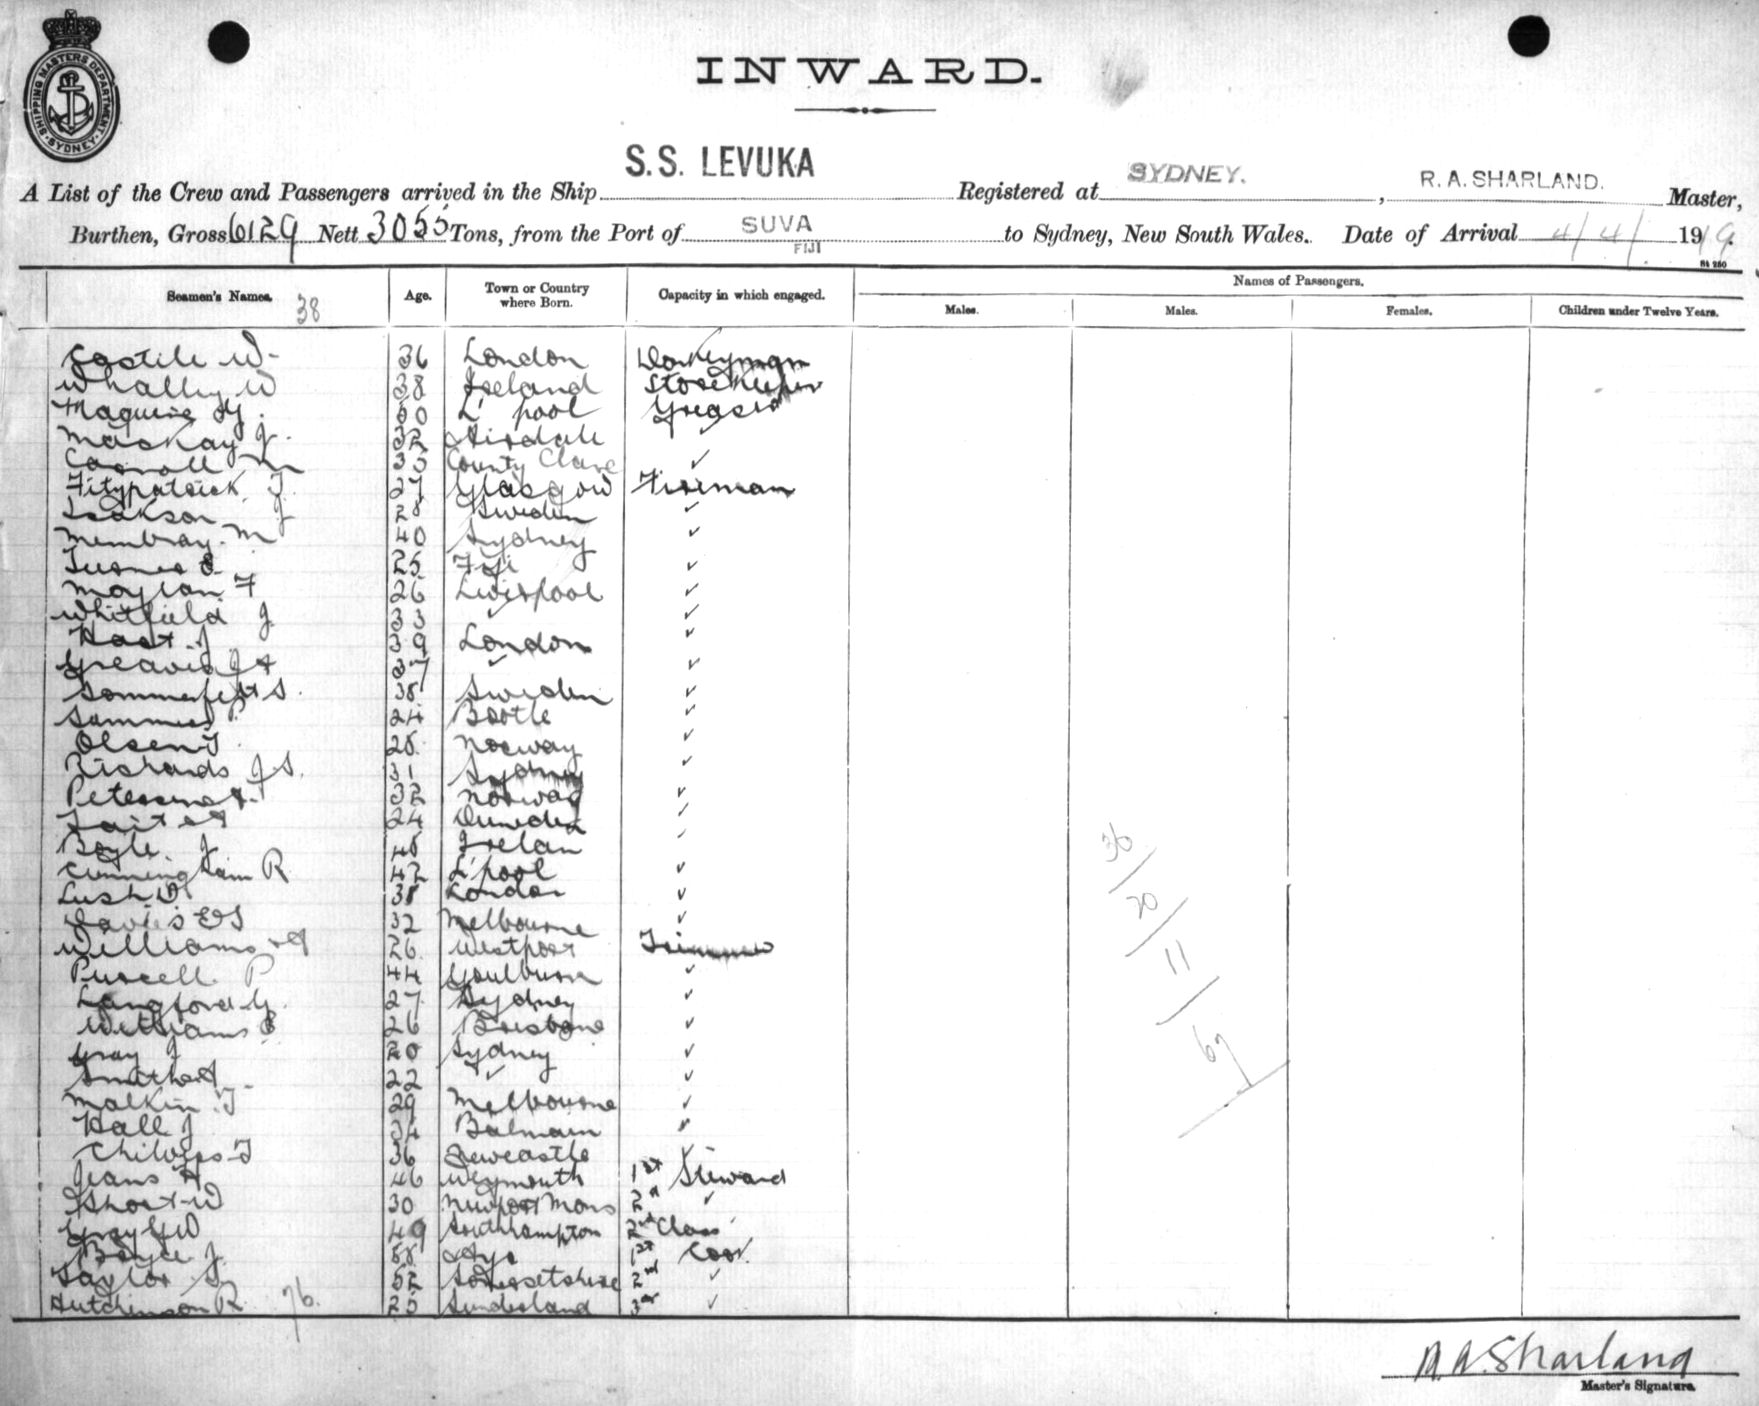 SHIPPING MASTERS DEPARTMENT SYDNEY
INWARD.
A List of the Crew and Passengers arrived in the Ship S.S. LEVUKA Registered at SYDNEY. , R. A. SHARLAND. Master,
Burthen, Gross 6129 Nett 3055 Tons, from the Port of SUVA FIJI to Sydney, New South Wales. Date of Arrival 4/4/ 1919.
Seamen's Names. 38 Age. Town or Country where Born. Capacity in which engaged. Names of Passengers.
Males. Males. Females. Children under Twelve Years.
W 36 London Donkeyman
Whalley W 38 Ireland Storekeeper
Maguire 30 L'pool Greaser
Mackay J. 32 Airdale ✓
Carroll M 35 County Clare ✓
Fitzpatrick T. 27 Glasgow Fireman
Isakson J 28 Sweden ✓
Membray. M 40 Sydney ✓
Turner E. 25 Fiji ✓
Moylan F 26 Liverpool ✓
Whitfield J 33 ✓ ✓
Hart. J 39 London ✓
Greaves J A 37 ✓ ✓
Sommerfelt S. 38 Sweden ✓
Summers P. 24 Bootle ✓
Olsen T 28. Norway ✓
Richards J. S. 31 Sydney ✓
Petersen A. 32 Norway ✓
Tait A 24 Dunedin ✓
Boyle. J 48 Irelan ✓
Cunningham R 42 L'pool ✓
Lush W 38 London ✓
Davies E J 32 Melbourne ✓
Williams A 26 Westport Trimmer
Purcell. P 44 Goulburn ✓
Langford G. 27 Sydney ✓
Williams B 26 Brisbane ✓
Gray J 20 Sydney ✓
Smith A 22 ✓ ✓
Malkin. T 29 Melbourne ✓
Hall J 34 Balmain ✓
Chilvers T 36 Newcastle ✓
Jeans A 46 Weymouth 1st Steward
Short W 30 Newport Mons 2nd ✓
Gray G W 49 Southhampton 2nd Class
Boyce J. 58 Ayr 1st Cook
Taylor S. 52 Somersetshire 2nd ✓
Hutchinson R 76. 25 Sunderland 3rd ✓
36/
20/
11/
67
R. A. Sharland
Master's Signature.